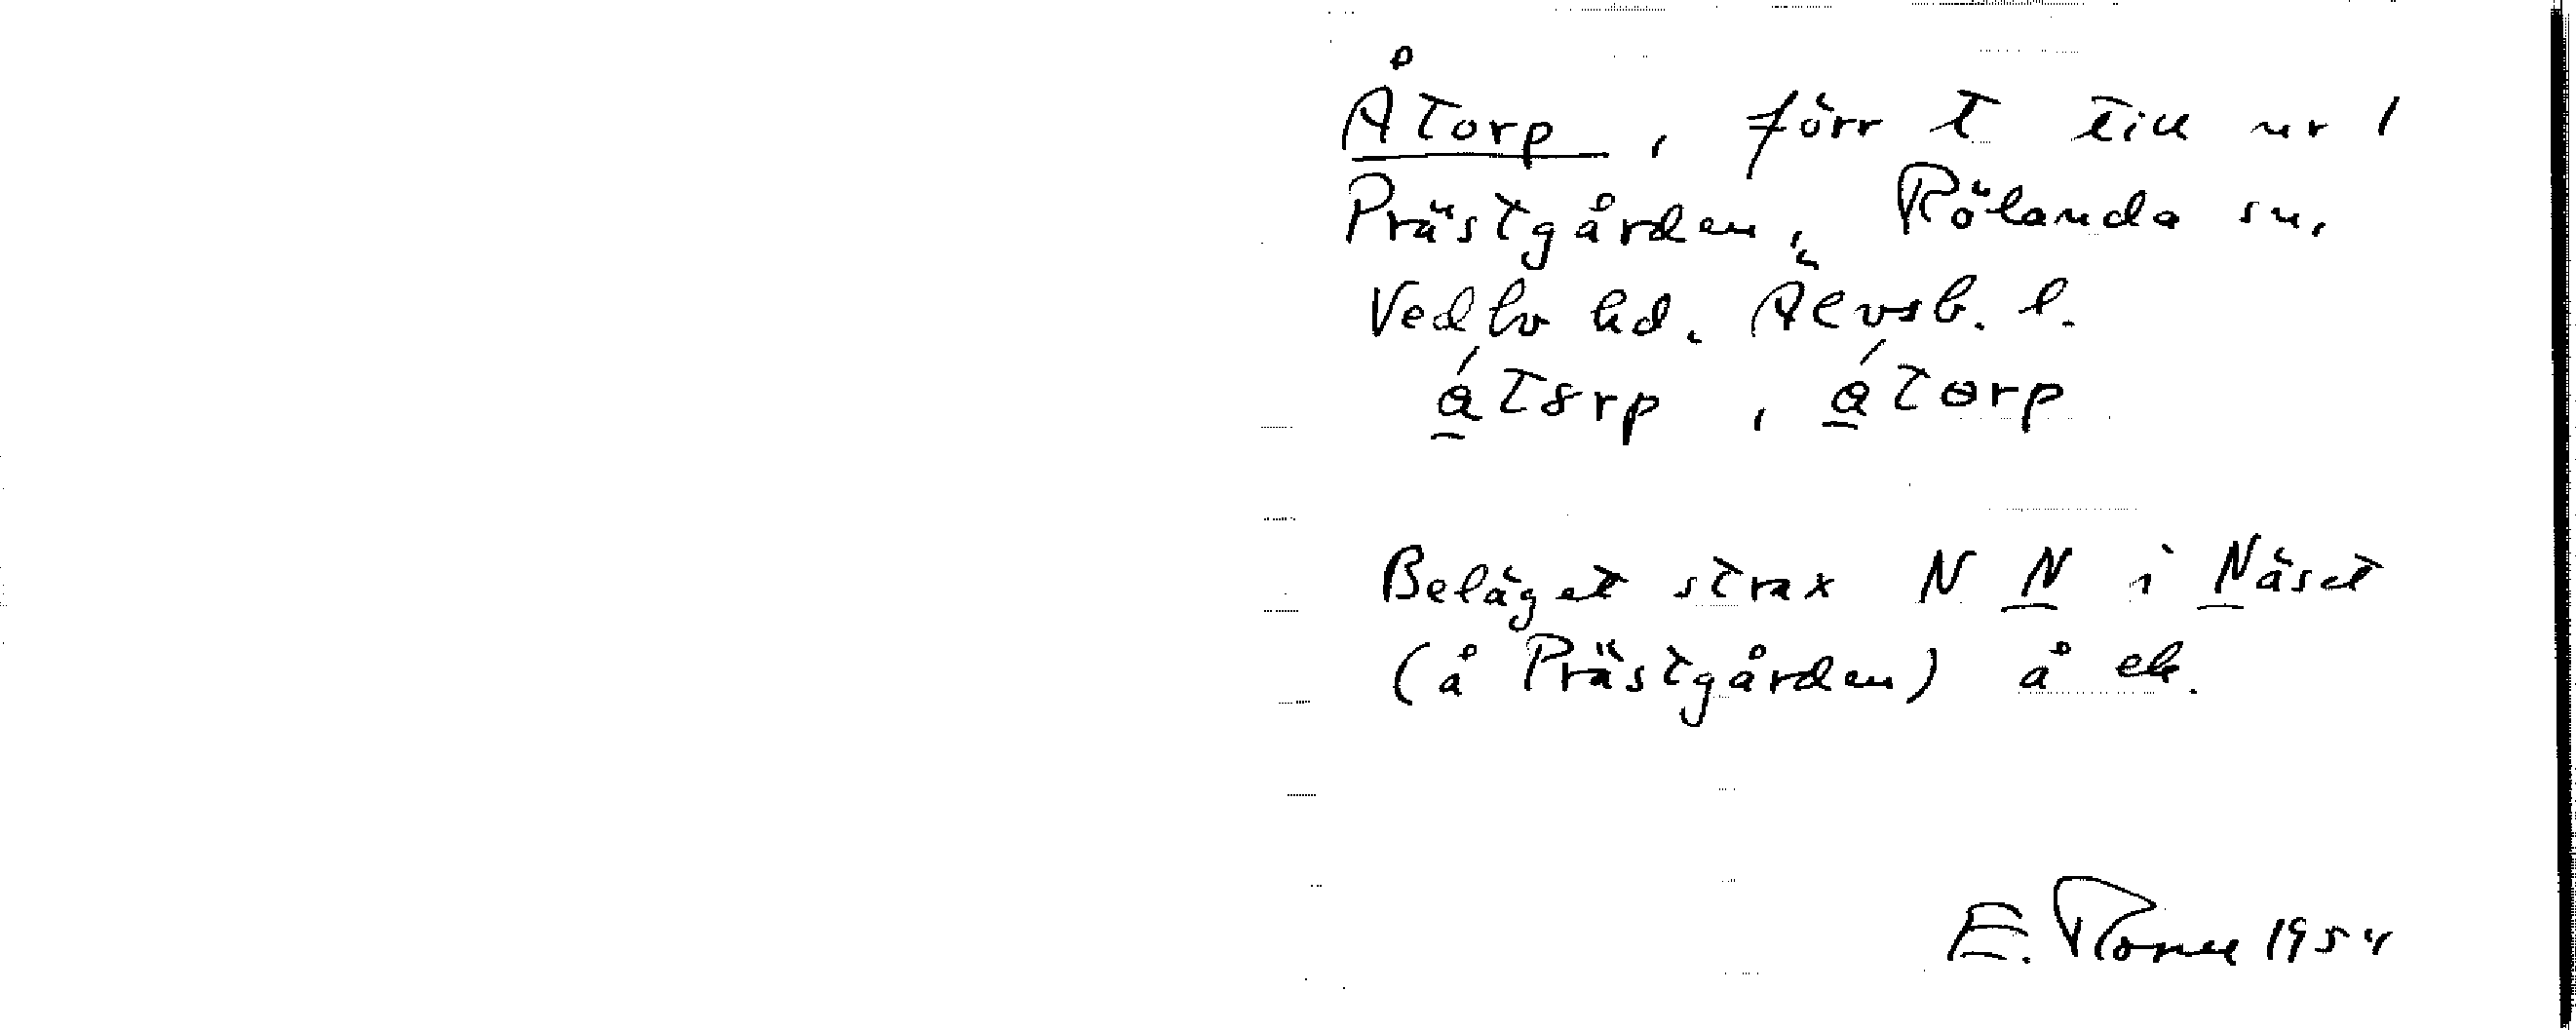 Åtorp, förr t till nr 1
Prästgården, Rölanda sn,
Vedbo hd. Älvsb. l.
Beläget strax N N i Näset
(å Prästgården) å ek.
E. 1954